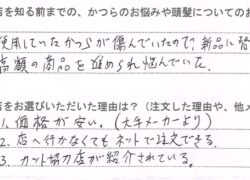 店を知る前までの、かつらのお悩みや頭髪についてのお
使用していたかつらが傷んでいたので、新品に替
高額の商品を進められ悩んでいた。
店をお選びいただいた理由は？（注文した理由や、他メ
1. 価格が安い。（大手メーカーより）
2. 店へ行かなくてもネットで注文できる。
3. カット協力店が紹介されている。